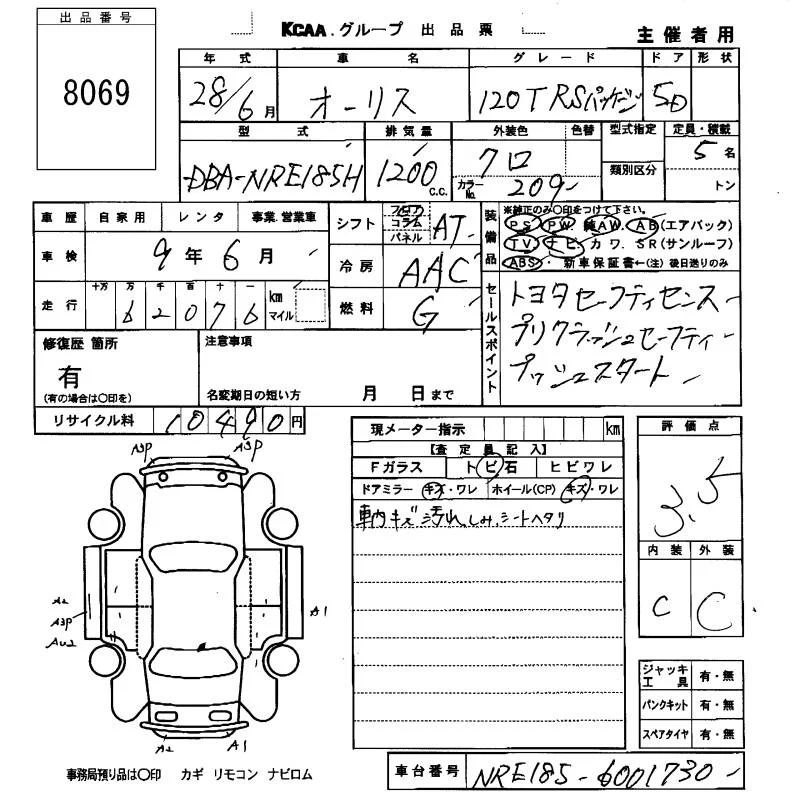 出品番号
8069
KCAA.グループ 出品票
主催者用
年式 車名 グレード ドア 形状
28/6月 オーリス 120T RSパッケージ 5D
型式 排気量 外装色 色替 型式指定 定員・積載
DBA-NRE185H 1200 c.c. クロ カラーNo. 209 類別区分 5名
トン
車歴 自家用 レンタ 事業.営業車
車検 9年6月
走行 十万 万 千 百 十 一 km マイル
62076
シフト フロア コラム パネル AT
冷房 AAC
燃料 G
装備品 ※純正のみ〇印をつけて下さい。
PS PW. 純AW. AB(エアバック)
TV ナビ カワ. SR(サンルーフ)
ABS・ 新車保証書←(注)後日送りのみ
セールスポイント
トヨタセーフティセンス
プリクラッシュセーフティ
プッシュスタート
修復歴 箇所
有
(有の場合は〇印を)
注意事項
名変期日の短い方 月 日まで
リサイクル料 10490円
現メーター指示 km
【査定員記入】
Fガラス トビ石 ヒビワレ
ドアミラー キズ・ワレ ホイール(CP) キズ・ワレ
車内キズ 汚れ.しみ.シートヘタリ
評価点
3.5
内装 外装
C C
ジャッキ工具 有・無
パンクキット 有・無
スペアタイヤ 有・無
A3P A3P
A2
A3P
AU2
A1
A2 A1
事務局預り品は〇印 カギ リモコン ナビロム
車台番号 NRE185-6001730